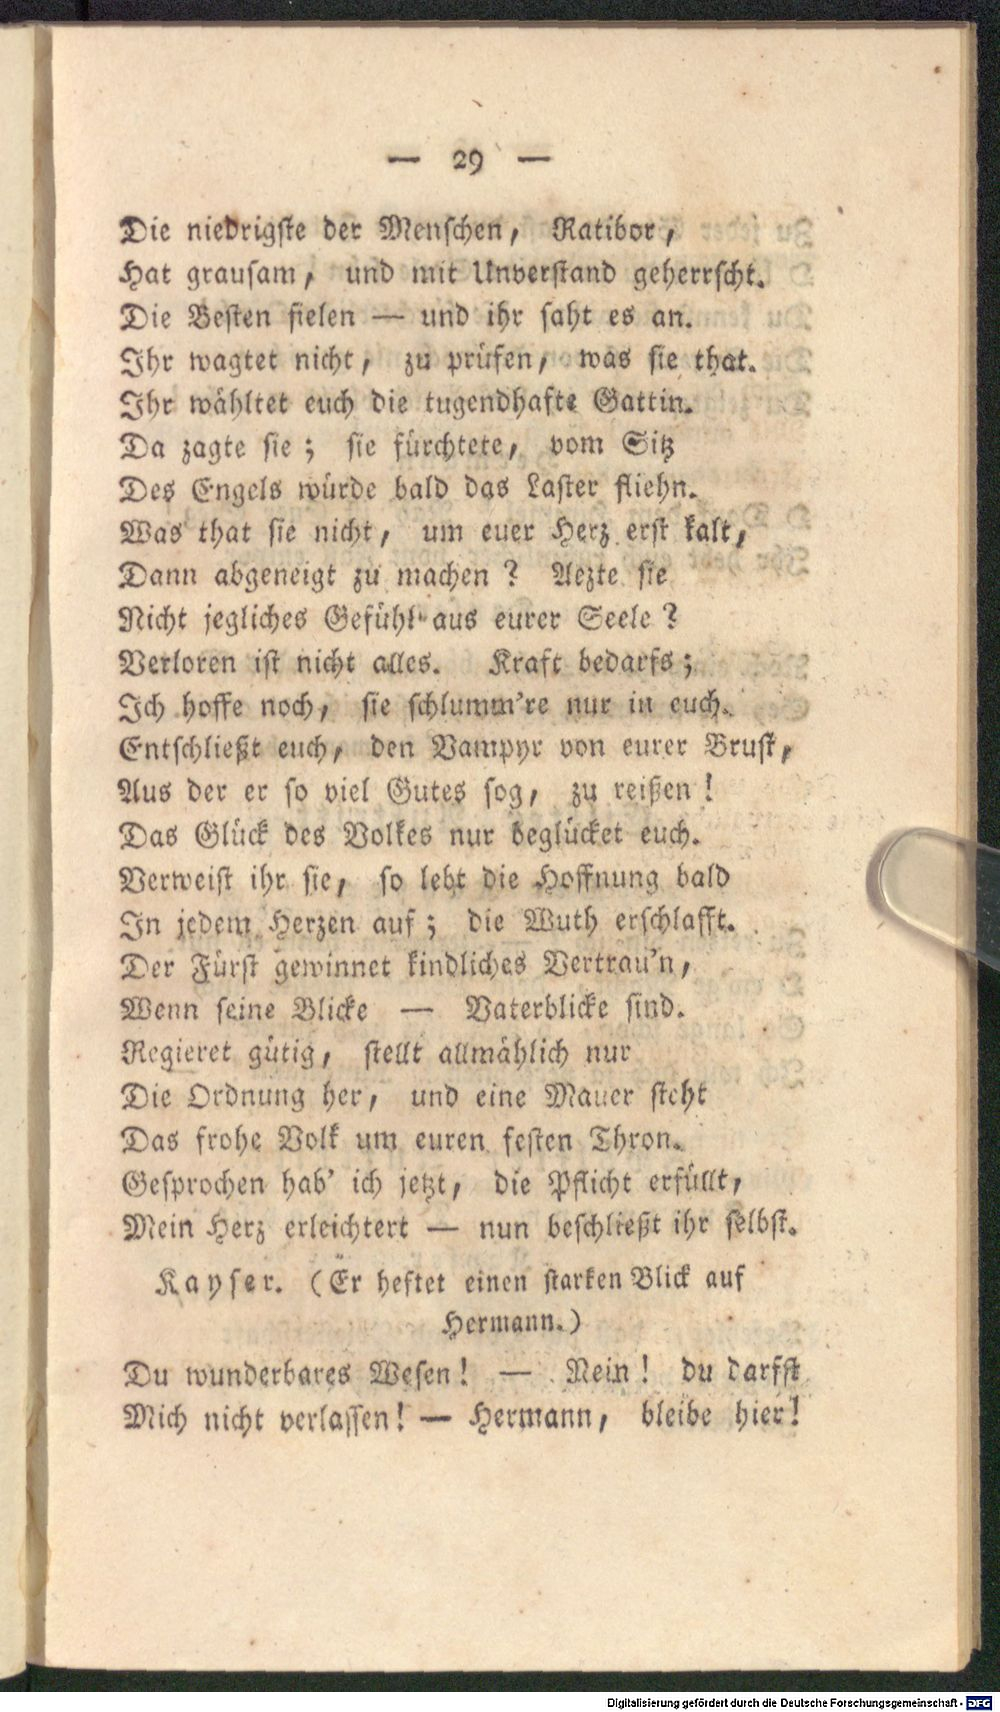 — 29 —
Die niedrigste der Menschen, Ratibor,
Hat grausam, und mit Unverstand geherrscht.
Die Besten fielen — und ihr saht es an.
Ihr wagtet nicht, zu prüfen, was sie that.
Ihr wähltet euch die tugendhafte Gattin.
Da zagte sie; sie fürchtete, vom Sitz
Des Engels würde bald das Laster fliehn.
Was that sie nicht, um euer Herz erst kalt,
Dann abgeneigt zu machen? Aezte sie
Nicht jegliches Gefühl aus eurer Seele?
Verloren ist nicht alles. Kraft bedarfs;
Ich hoffe noch, sie schlumm're nur in euch.
Entschließt euch, den Vampyr von eurer Brust,
Aus der er so viel Gutes sog, zu reißen!
Das Glück des Volkes nur beglücket euch.
Verweist ihr sie, so lebt die Hoffnung bald
In jedem Herzen auf; die Wuth erschlafft.
Der Fürst gewinnet kindliches Vertrau'n,
Wenn seine Blicke — Vaterblicke sind.
Regieret gütig, stellt allmählich nur
Die Ordnung her, und eine Mauer steht
Das frohe Volk um euren festen Thron.
Gesprochen hab' ich jetzt, die Pflicht erfüllt,
Mein Herz erleichtert — nun beschließt ihr selbst.
Kayser. (Er heftet einen starken Blick auf
Hermann.)
Du wunderbares Wesen! — Nein! du darfst
Mich nicht verlassen! — Hermann, bleibe hier!
Digitalisierung gefördert durch die Deutsche Forschungsgemeinschaft - DFG